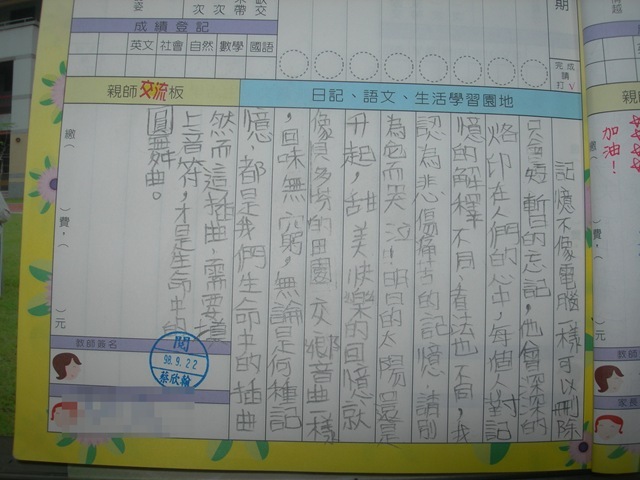 期
完成請打V
成績登記
英文 社會 自然 數學 國語
親師交流板
日記、語文、生活學習園地
記憶不像電腦一樣可以刪除
只會短暫的忘記,他會深深的
烙印在人們的心中,每個人對記
憶的解釋不同,看法也不同,我
認為悲傷痛苦的記憶 請別
為它而哭泣,明日的太陽還是
升起,甜美快樂的回憶就
像貝多芬的田園交響曲一樣
,回味無窮,無論是何種記
憶,都是我們生命中的插曲
然而這插曲,需要填
上音符,才是生命中的
圓舞曲。
繳(
費,(
元
教師簽名
閱
98.9.22
蔡欣翰
加油!
教師
家長